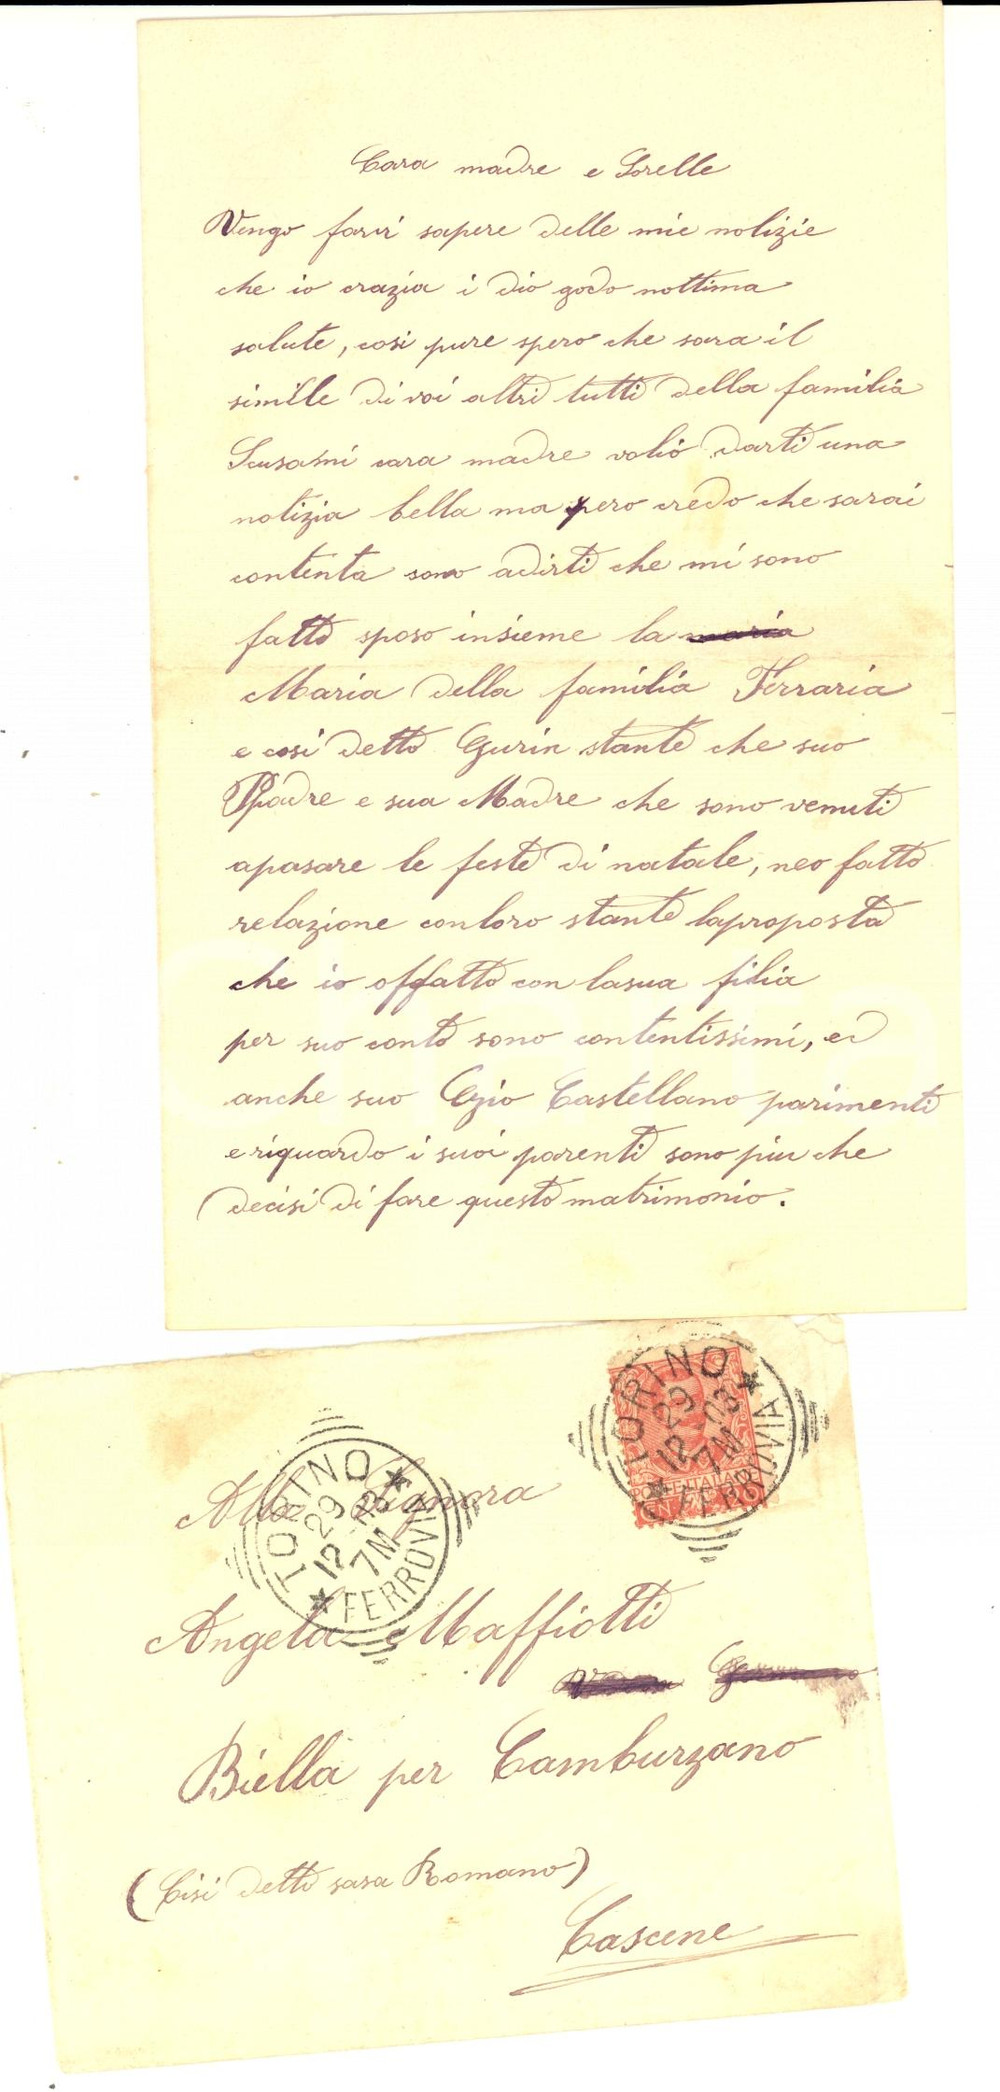 Cara madre e Sorelle
Vengo farvi sapere delle mie notizie
che io crazia i dio godo nottima
salute, cosi pure spero che sara il
simille di voi altri tutti della familia
Scusami cara madre voliò darti una
notizia bella ma pero credo che sarai
contenta sono adirti che mi sono
fatto sposo insieme la maria
Maria della familia Ferraria
e cosi detto Gurin stante che suo
Padre e sua Madre che sono venuti
apasare le feste di natale, neo fatto
relazione conloro stante laproposta
che io offatto con lasua filia
per suo conto sono contentissimi, ed
anche suo Czio Castellano parimenti
e riquardo i suoi parenti sono piu che
decisi di fare questo matrimonio.
TORINO
FERROVIA
29
12 03
7M
POSTE ITALIANE
TORINO
FERROVIA
29
12 03
7M
Alla Signora
Angela Maffiotti
Biella per Camburzano
(Cisi detti sara Romano)
Cascene